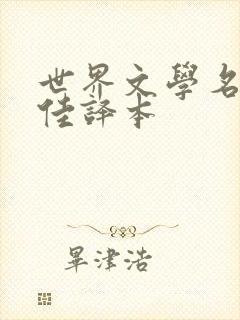 世界文學名
佳譯本
畢津浩